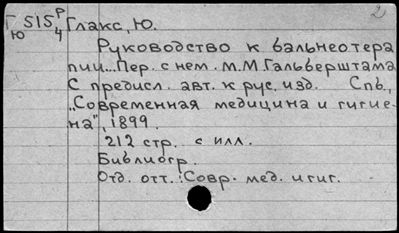 Г 515 Р Глакс, Ю.
Ю 4
2
Руководство к бальнеотера
пии... Пер. с нем. М.М.Гальверштама
С предисл. авт. к рус. изд. Спб.,
„Современная медицина и гигие-
на", 1899.
212 стр. с илл.
Библиогр.
Отд. отт.: Совр. мед. и гиг.